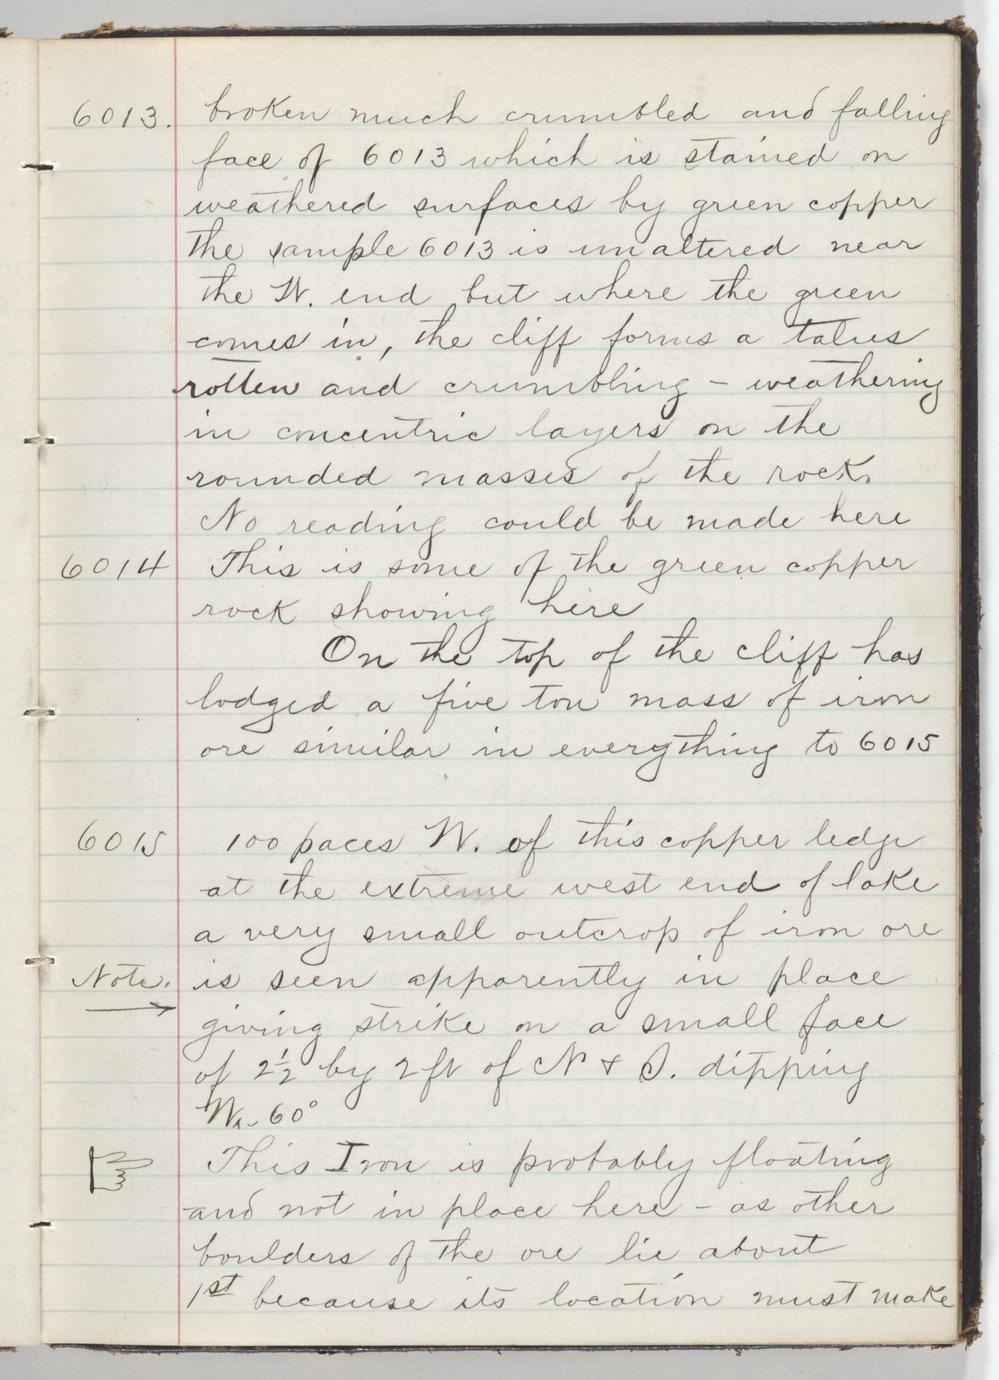 6013. broken much crumbled and falling
face of 6013 which is stained on
weathered surfaces by green copper
the sample 6013 is unaltered near
the W. end but where the green
comes in, the cliff forms a talus
rotten and crumbling – weathering
in concentric layers on the
rounded masses of the rock.
No reading could be made here
6014 This is some of the green copper
rock showing here
On the top of the cliff has
lodged a five ton mass of iron
ore similar in everything to 6015
6015 100 paces W. of this copper ledge
at the extreme west end of lake
a very small outcrop of iron ore
Note. is seen apparently in place
giving strike on a small face
of 2½ by 2 ft of N & S. dipping
W. 60°
This Iron is probably floating
and not in place here – as other
boulders of the ore lie about
1st because its location must make